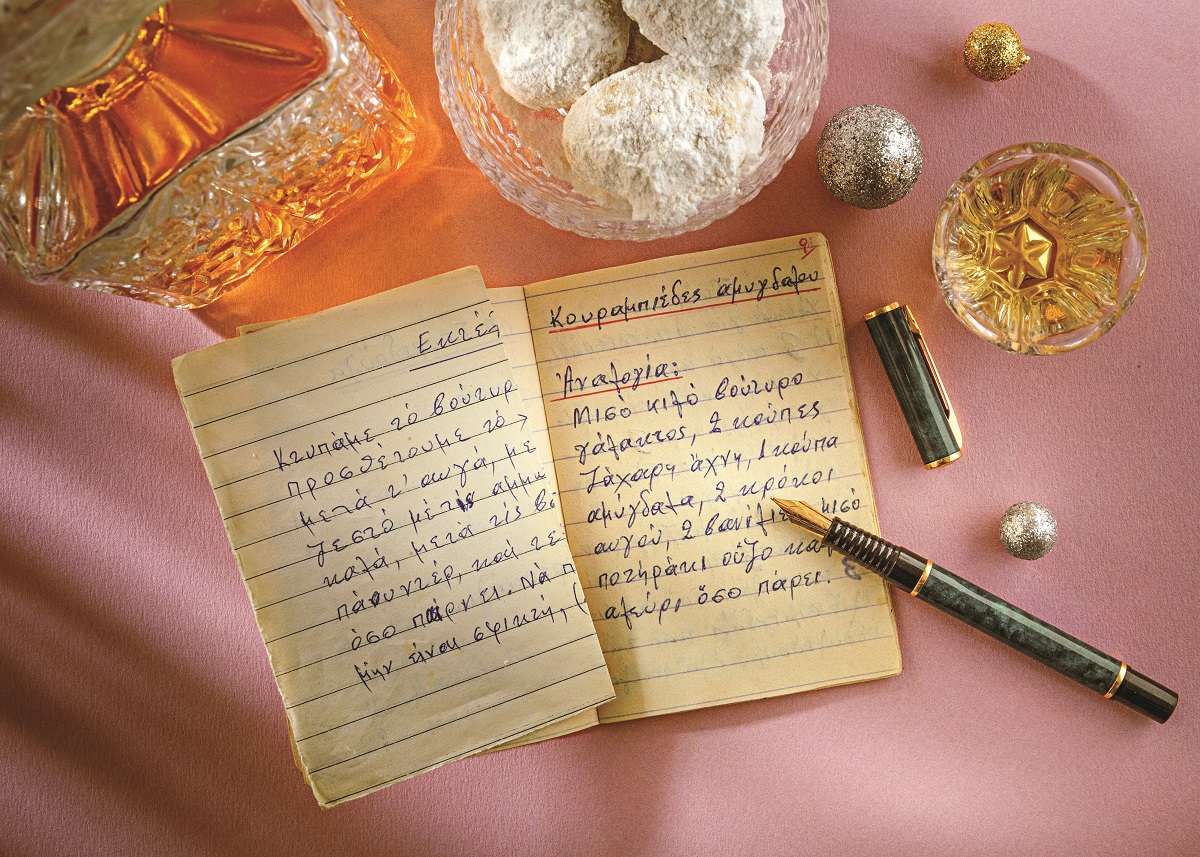 Εκτέ
Κτυπάμε τό βούτυρ
προσθέτουμε τό
μετά τ' αυγά, με
ζεστό μέ τις αμμω
καλά, μετά τίς βα
πάουντερ, καί τε
όσο πάρνει. Νά π
μήν είναι σφικτή, (
9
Κουραμπιέδες ἀμυγδαλου
Ἀναλογία:
Μισό κιλό βούτυρο
γάλακτος, 2 κούπες
ζάχαρη ἄχνη, 1 κούπα
αμύγδαλα, 2 κρόκοι
αυγού, 2 βανίλιες μισό
ποτηράκι οὔζο και
αλεύρι ὅσο πάρει.